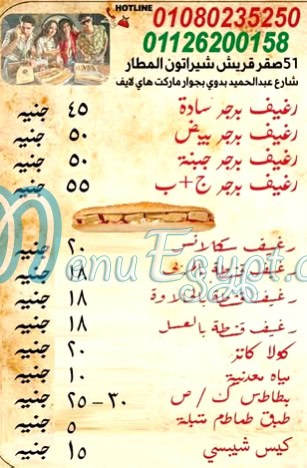 HOTLINE
01080235250
01126200158
51صقر قريش شيراتون المطار
شارع عبدالحميد بدوي بجوار ماركت هاي لايف
رغيف برجر سادة ٤٥ جنيه
رغيف برجر بيض ٥٠ جنيه
رغيف برجر جبنة ٥٠ جنيه
رغيف برجر ج+ب ٥٥ جنيه
رغيف سكالانس ٢٠ جنيه
رغيف قشطة بالمربى ١٨ جنيه
رغيف قشطة بالحلاوة ١٨ جنيه
رغيف قشطة بالعسل ١٨ جنيه
كولا كانز ٢٠ جنيه
مياه معدنية ١٠ جنيه
بطاطس ك / ص ٣٠ - ٢٥ جنيه
طبق طماطم متبلة ٥ جنيه
كيس شيبسي ١٥ جنيه
MenuEgypt.com